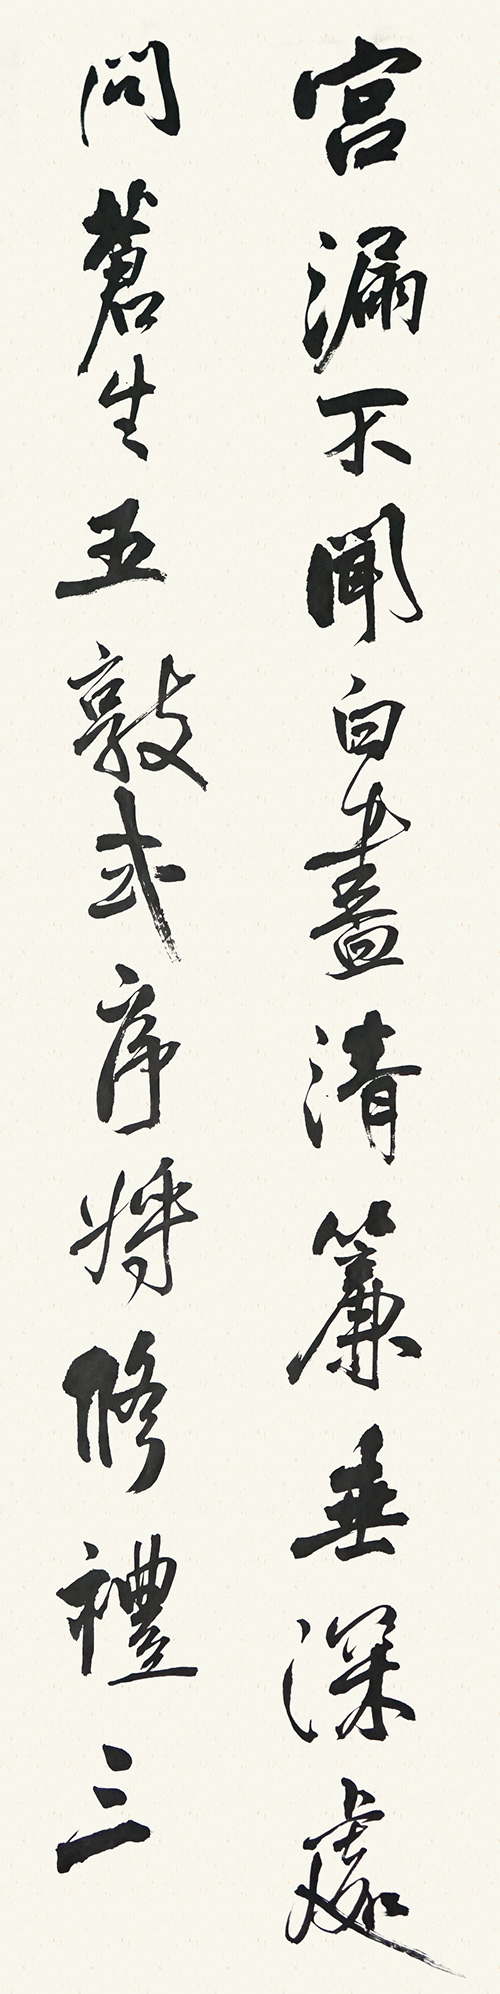 宮漏不聞白晝清簾垂深處
問蒼生五敦式序將修禮三